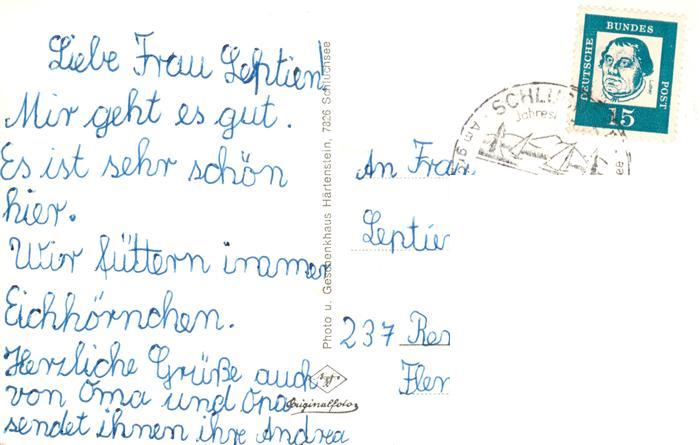 Liebe Frau Leptien!
Mir geht es gut.
Es ist sehr schön
hier.
Wir füttern immer
Eichhörnchen.
Herzliche Grüße auch
von Oma und Opa
sendet ihnen ihre Andrea
Photo u. Geschenkhaus Härtenstein, 7826 Schluchsee
Originalfoto
DEUTSCHE
BUNDES
POST
15
SCHLUCH
Jahres
An Frau
Leptien
237 Ren
Flen